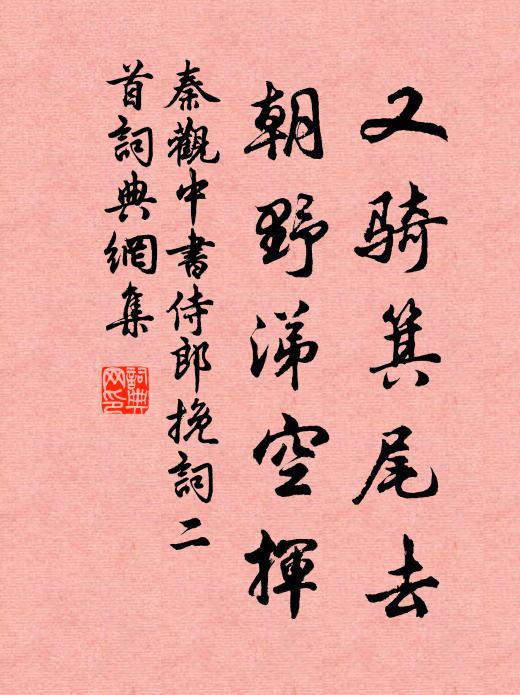 又骑箕尾去
朝野涕空揮
秦觀中書侍郎挽詞二
首詞典網集
詞典
网印